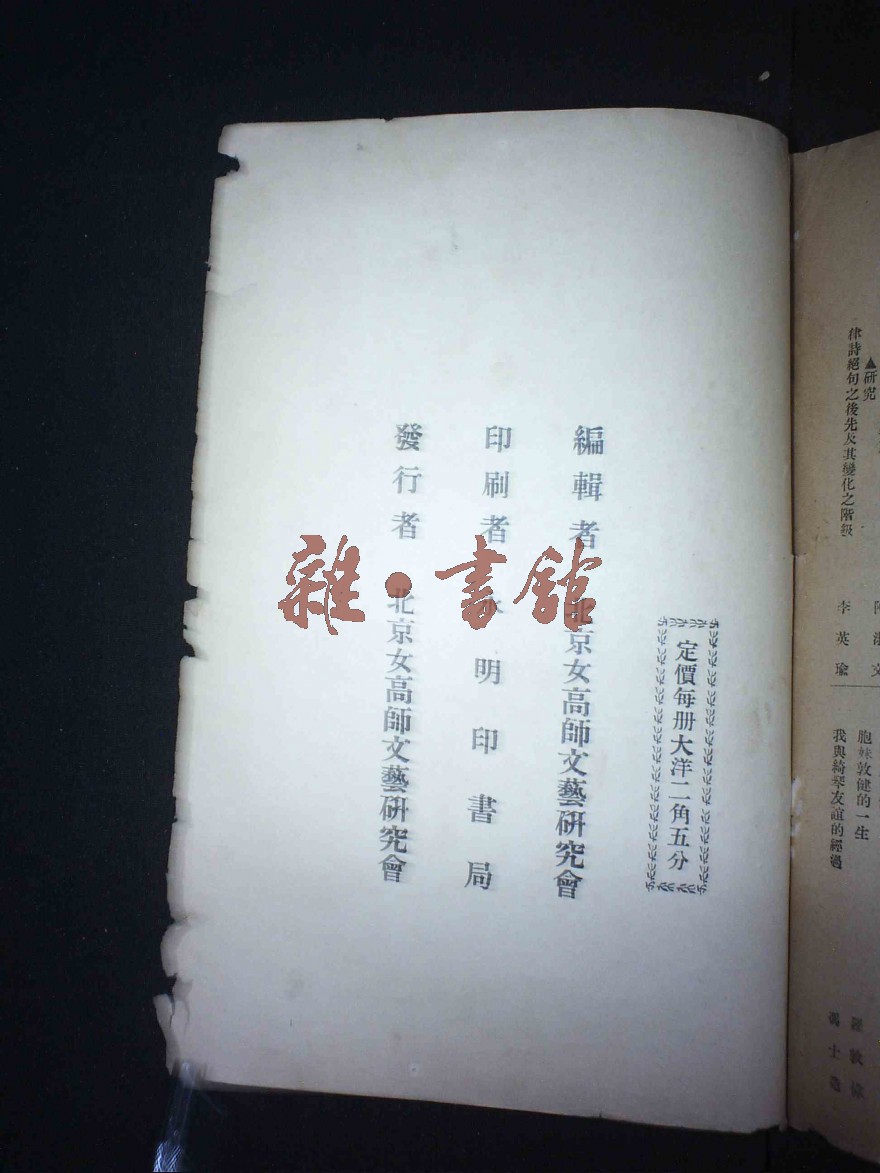 ▲研究
律詩絕句之後先及其變化之階級
李英瑜
胞妹敦健的一生
我與綺琴友誼的經過
定價每册大洋二角五分
編輯者 北京女高師文藝研究會
印刷者 明印書局
發行者 北京女高師文藝研究會
雜·書館